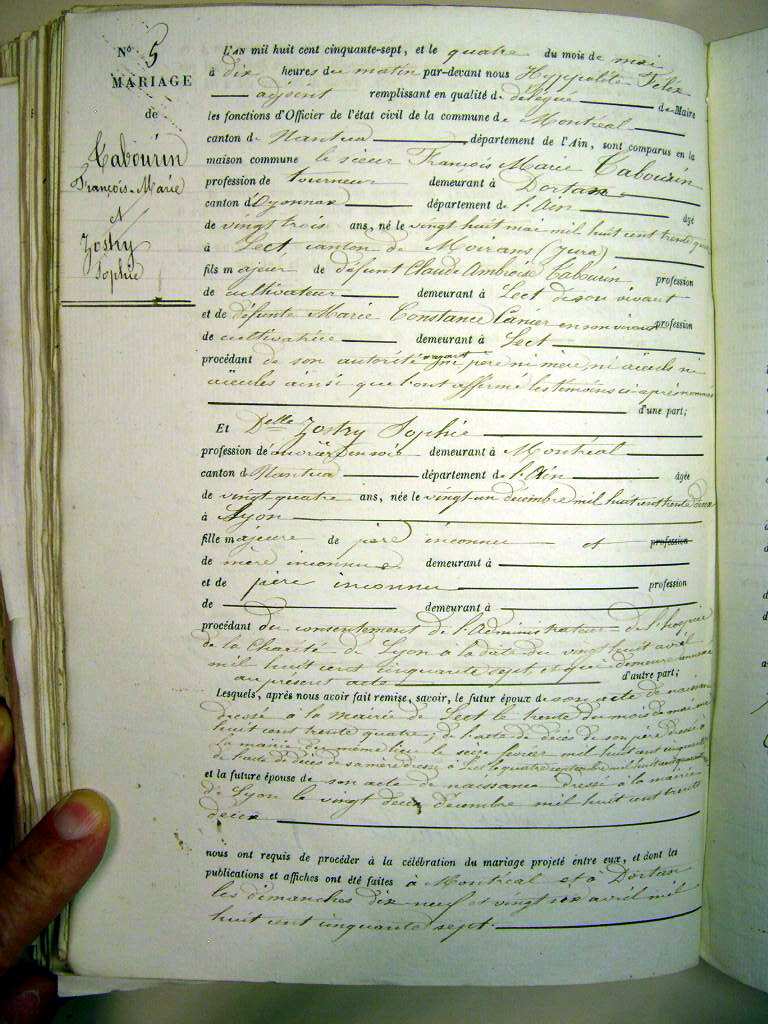 N° 5
MARIAGE
de
Cabourin
François-Marie
et
Zostry
Sophie
L'AN mil huit cent cinquante-sept, et le quatre du mois de mai
à dix heures du matin par-devant nous Hyppolite Felix
adjoint remplissant en qualité de délégué de Maire
les fonctions d'Officier de l'état civil de la commune de Montréal
canton de Nantua, département de l'Ain, sont comparus en la
maison commune le sieur François Marie Cabourin
profession de tourneur demeurant à Dortan
canton d'Oyonnax département de l'Ain âgé
de vingt trois ans, né le vingt huit mai mil huit cent trente quatre
à Lect canton de Moirans (Jura)
fils majeur de défunt Claude Ambroise Cabourin profession
de cultivateur demeurant à Lect de son vivant
et de défunte Marie Constance en son vivant profession
de cultivatrice demeurant à Lect
procédant de son autorité n'ayant père ni mère, ni aïeuls ni
aïeules ainsi que l'ont affirmé les témoins ci-après nommés
d'une part;
Et Delle Zostry Sophie
profession de ouvrière en soie demeurant à Montréal
canton d Nantua département de l'Ain âgée
de vingt quatre ans, née le vingt un décembre mil huit cent trente deux
à Lyon
fille majeure de père inconnu et profession
de mère inconnue demeurant à
et de père inconnu profession
de demeurant à
procédant du consentement de l'Administrateur de l'hospice
de la Charité de Lyon à la date du vingt huit avril
mil huit cent cinquante sept et qui demeure annexé
au présent acte d'autre part;
Lesquels, après nous avoir fait remise, savoir, le futur époux de son acte de naissance
dressé à la mairie de Lect le trente du mois de mai mil
huit cent trente quatre; de l'acte de décès de son père dressé à
la mairie du même lieu le seize février mil huit cent cinquante
de l'acte de décès de sa mère dressé à Lect le quatre septembre mil huit cent
et la future épouse de son acte de naissance dressé à la mairie
de Lyon le vingt deux décembre mil huit cent trente
deux
nous ont requis de procéder à la célébration du mariage projeté entre eux, et dont les
publications et affiches ont été faites à Montréal et à Dortan
les dimanches dix neuf et vingt six avril mil
huit cent cinquante sept.